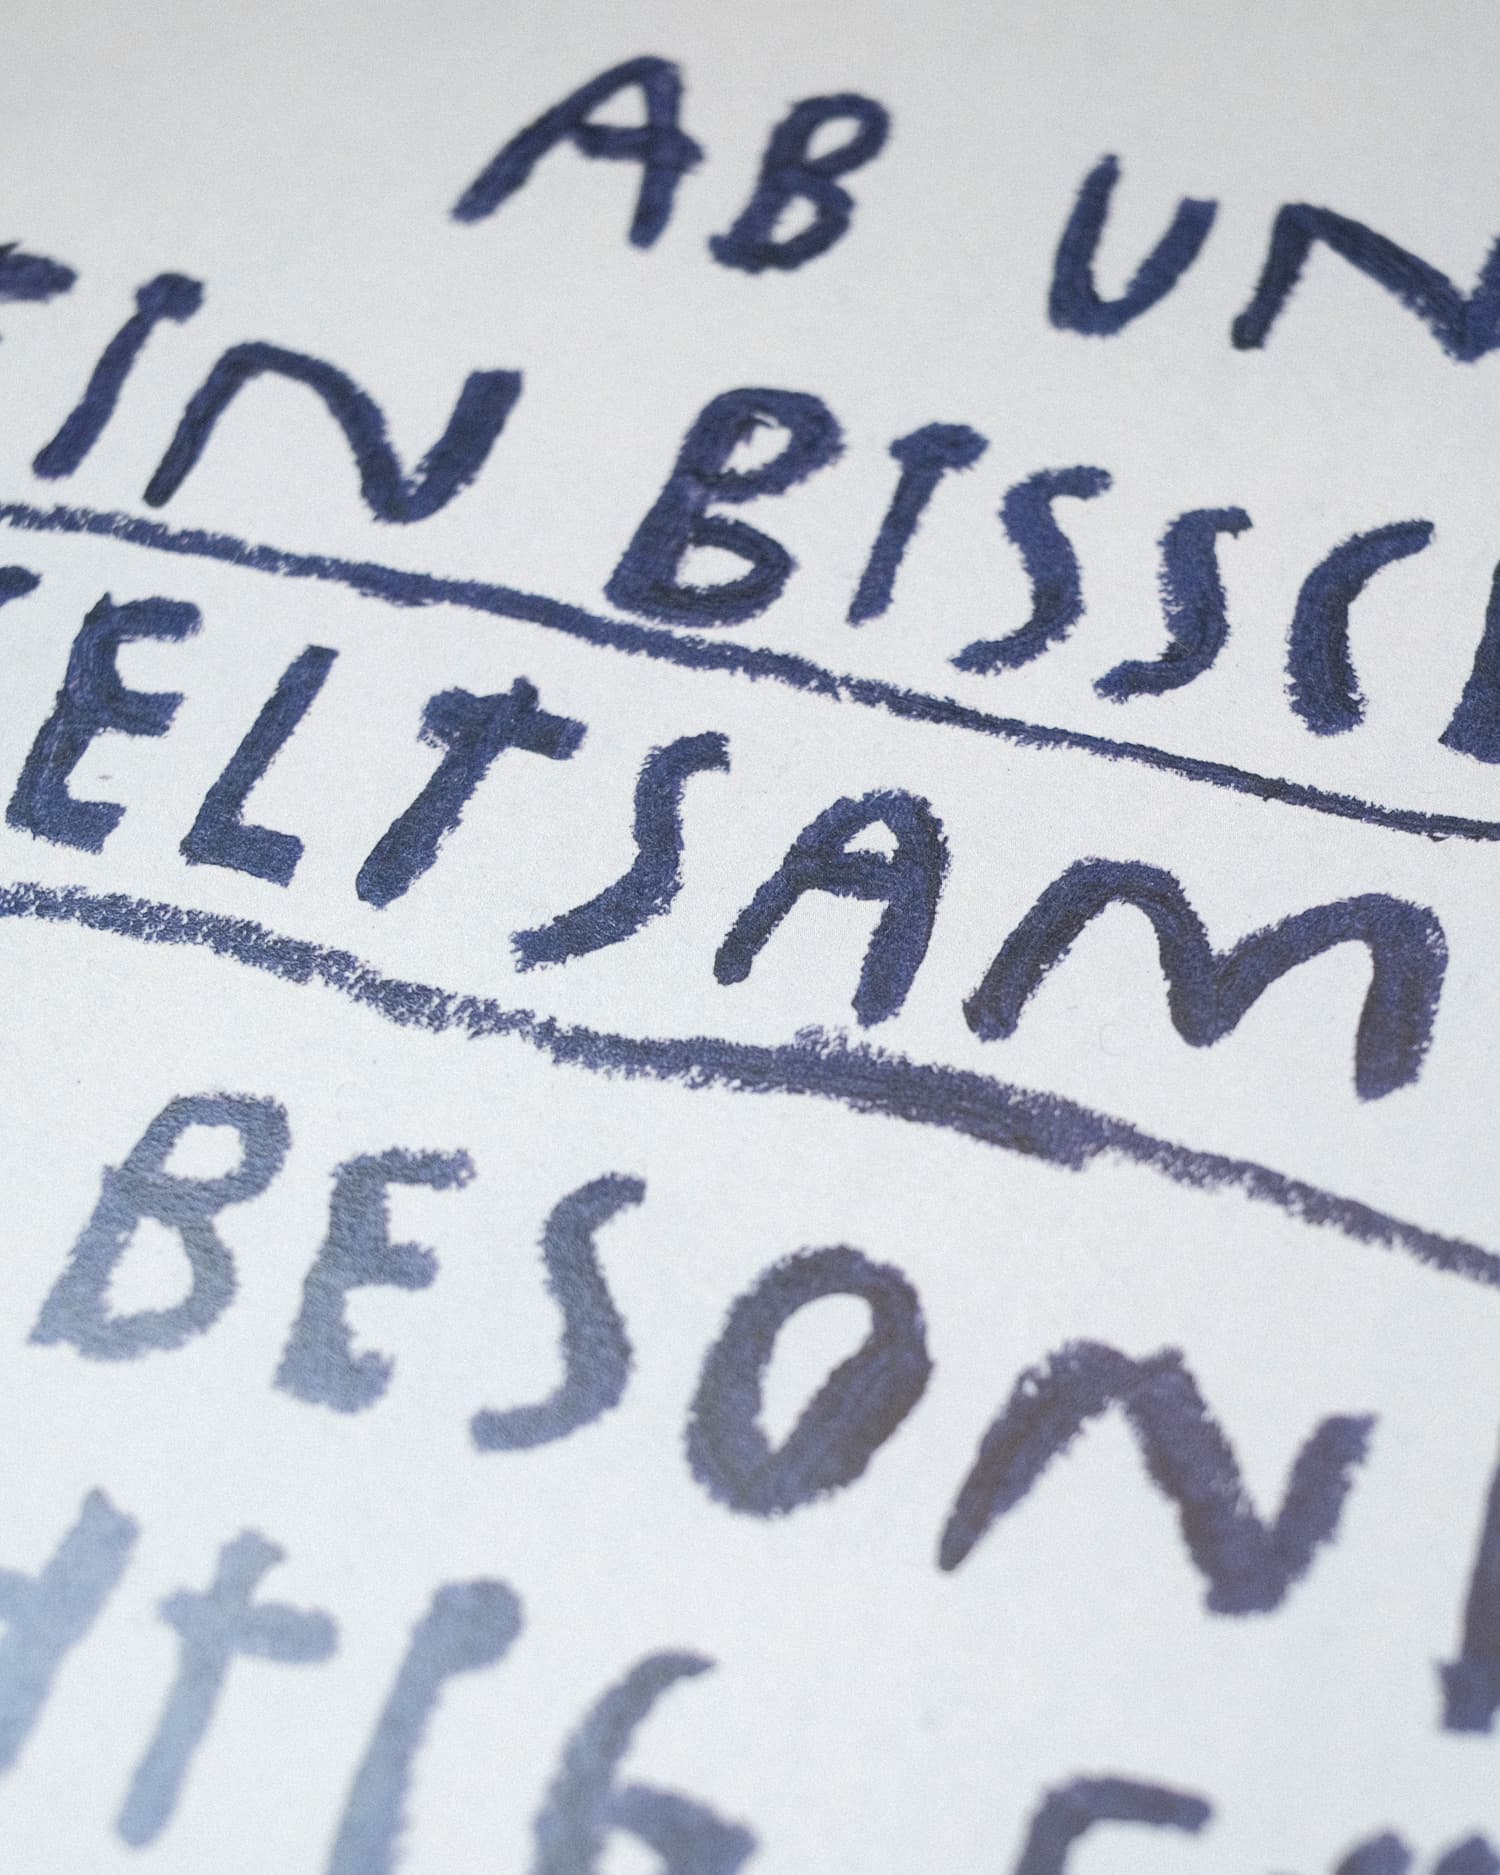 AB UN
EIN BISSCH
SELTSAM
BESOND
HTIG